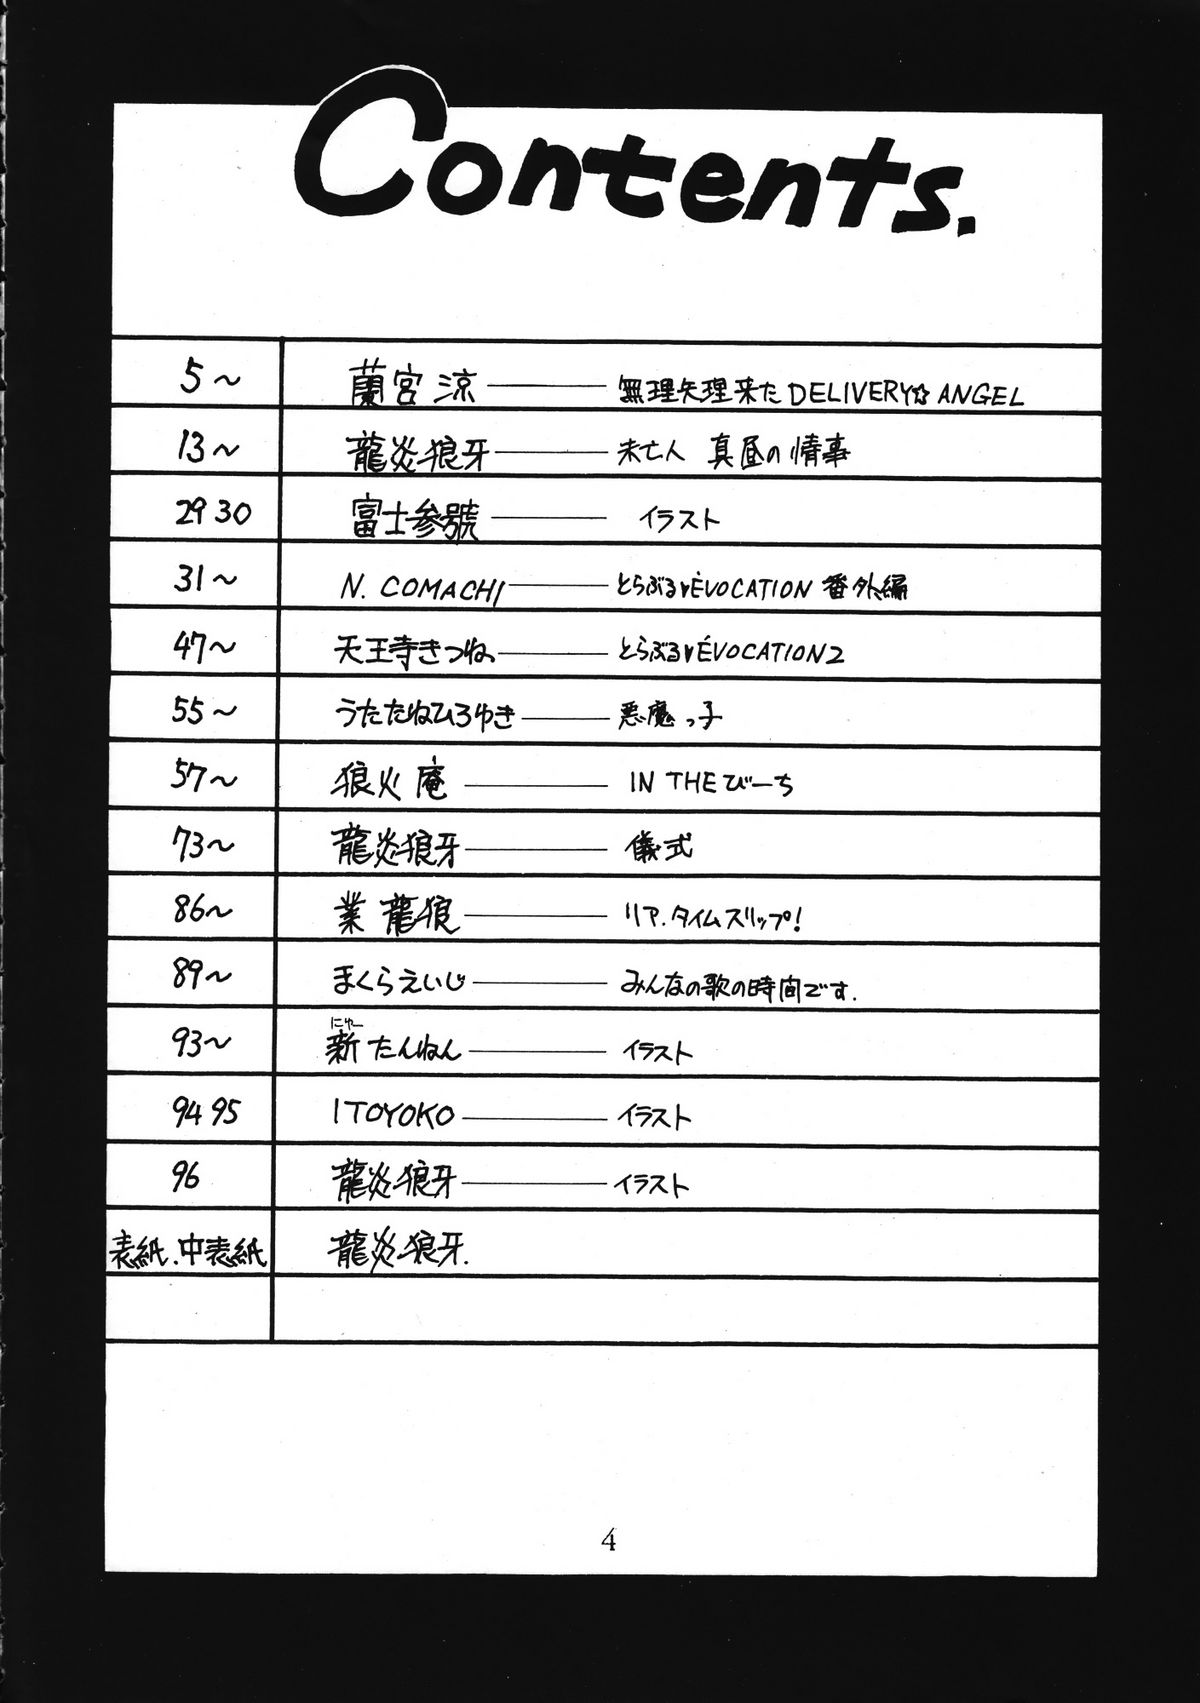 Contents.
5～ 蘭宮 涼 ―― 無理矢理来た DELIVERY☆ANGEL
13～ 龍炎狼牙 ―― 未亡人 真昼の情事
29 30 富士参號 ―― イラスト
31～ N. COMACHI ―― とらぶる♥ÉVOCATION 番外編
47～ 天王寺きつね ―― とらぶる♥ÉVOCATION2
55～ うたたねひろゆき ―― 悪魔っ子
57～ 狼火庵 ―― IN THE びーち
73～ 龍炎狼牙 ―― 儀式
86～ 業 龍狼 ―― リア.タイムスリップ!
89～ まくらえいじ ―― みんなの歌の時間です.
にゅー
93～ 新たんねん ―― イラスト
94 95 ITOYOKO ―― イラスト
96 龍炎狼牙 ―― イラスト
表紙.中表紙 龍炎狼牙.
4